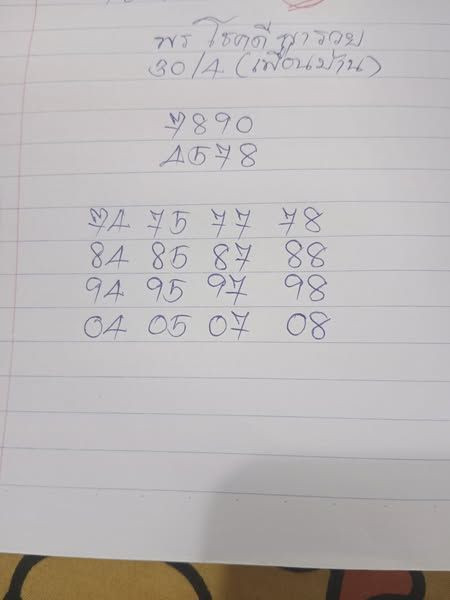 พร โชคดี มารวย
30/4 (เพื่อนบ้าน)
7890
4578
74 75 77 78
84 85 87 88
94 95 97 98
04 05 07 08